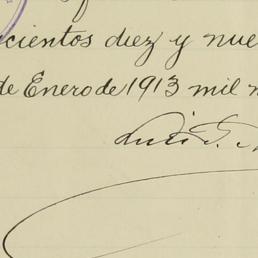 cientos diez y nue
de Enero de 1913 mil n
Luis G.